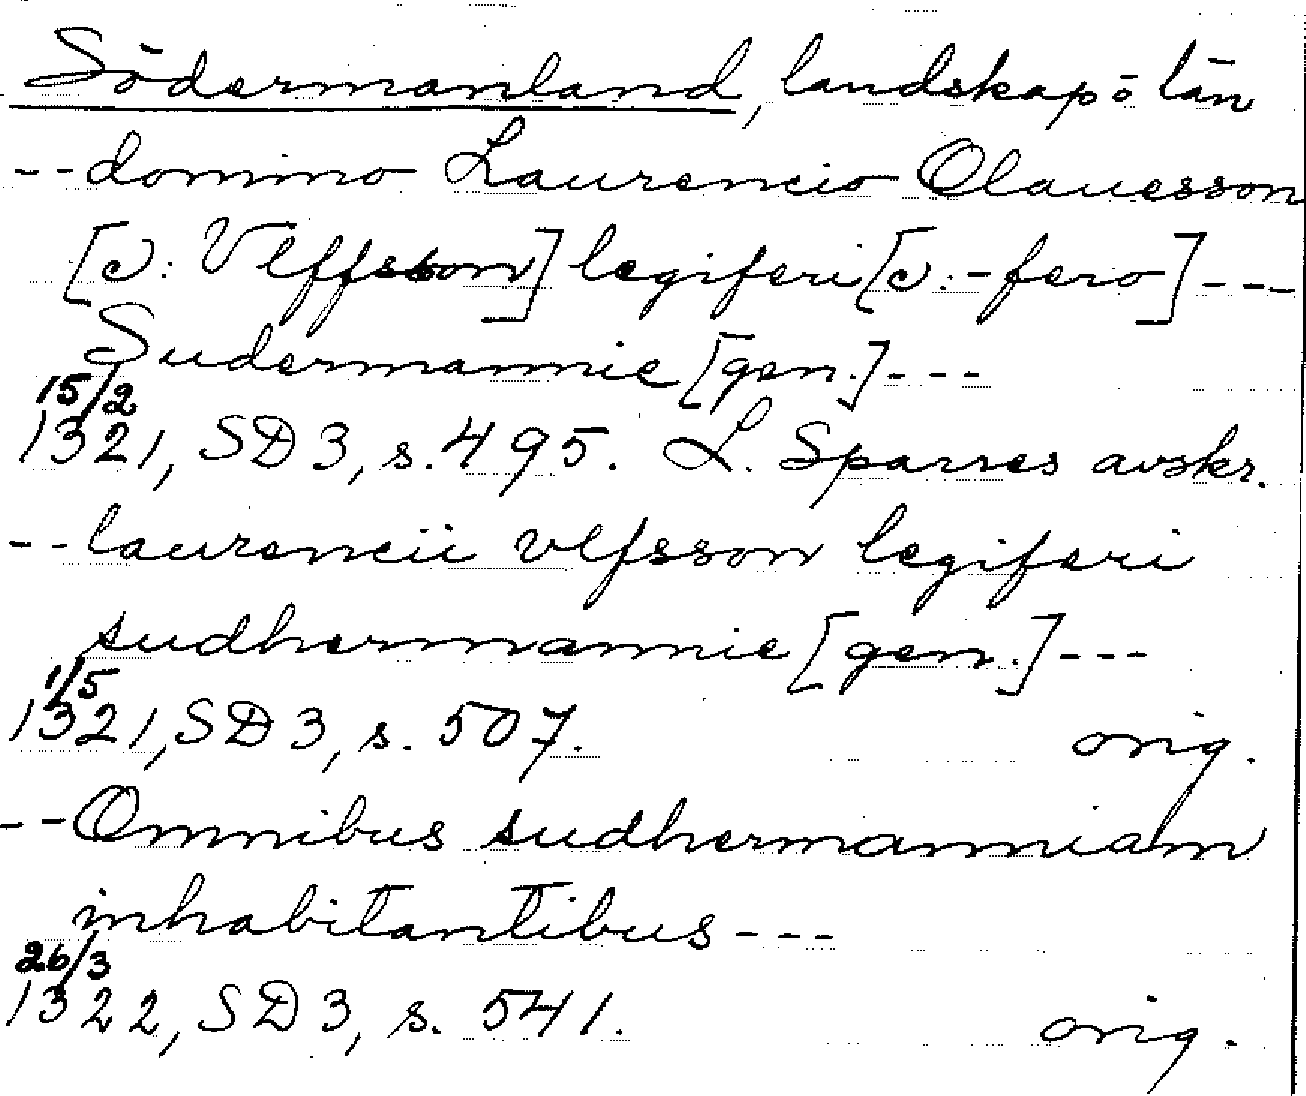 Södermanland, landskap o län
-- domino Laurencio Olauesson
[v: Vlffsson] legiferi [v: -fero] ---
Sudermannie [gen.] ---
15/2
1321, SD 3, s. 495. L. Sparres avskr.
-- laurencii vlfsson legiferi
sudhermannie [gen.] ---
1/5
1321, SD 3, s. 507. orig.
-- Omnibus sudhermanniam
inhabitantibus ---
26/3
1322, SD 3, s. 541. orig.